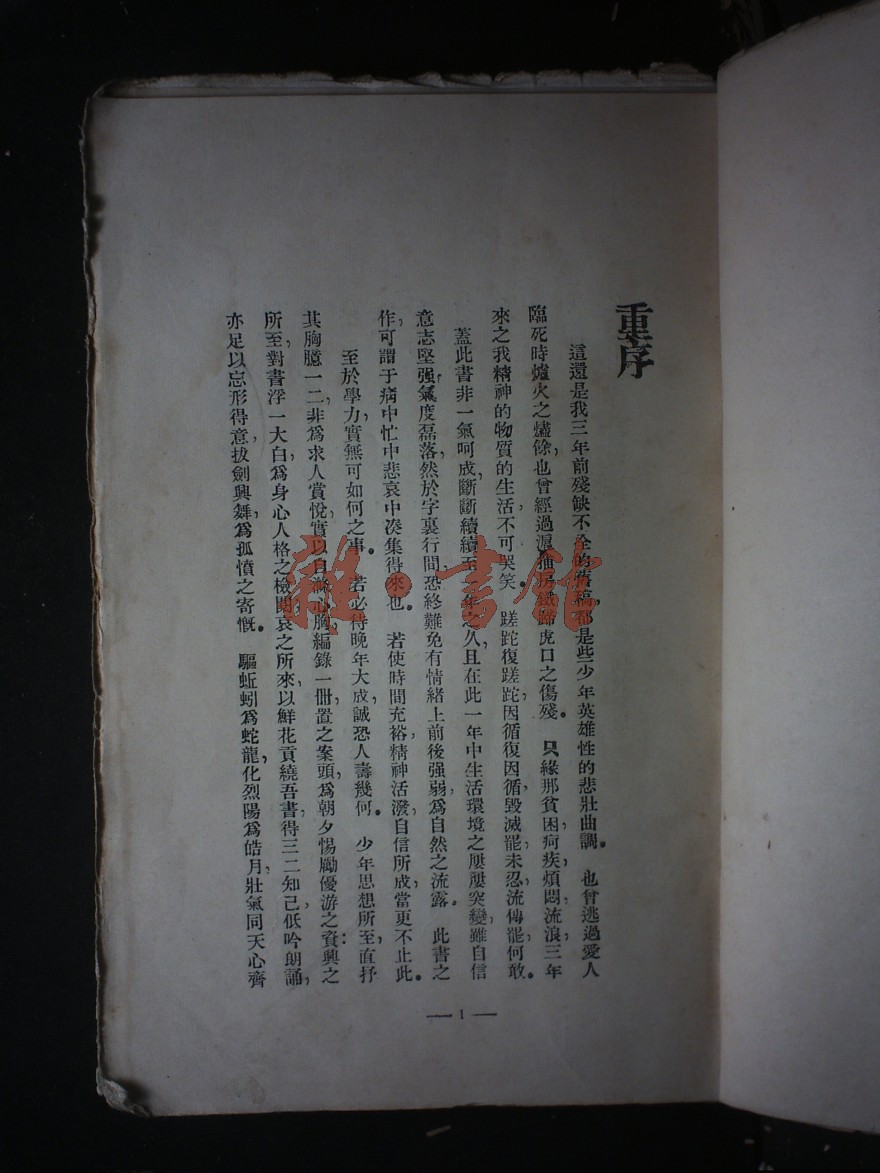 重序
這還是我三年前殘缺不全的舊稿，都是些少年英雄性的悲壯曲調。也曾逃過愛人
臨死時爐火之燼餘，也曾經過滬獄房鐵蹄虎口之傷殘。只緣那貧困疴疾，煩悶流浪，三年
來之我精神的物質的生活，不可哭笑。蹉跎復蹉跎，因循復因循，毀滅罷未忍，流傳罷何敢。
蓋此書非一氣呵成，斷斷續續至年之久，且在此一年中生活環境之屢屢突變，雖自信
意志堅强，氣度磊落，然於字裏行間，恐終難免有情緒上前後强弱，爲自然之流露。此書之
作，可謂于病中忙中悲哀中凑集得來也。若使時間充裕，精神活潑，自信所成，當更不止此。
至於學力，實無可如何之事。若必待晚年大成，誠恐人壽幾何。少年思想所至，直抒
其胸臆一二，非爲求人賞悅，實以自滌心胸，編錄一冊，置之案頭，爲朝夕惕勵優游之資；興之
所至，對書浮一大白，爲身心人格之檢閱，哀之所來，以鮮花貢繞吾書，得三二知己，低吟朗誦，
亦足以忘形得意，拔劍興舞，爲孤憤之寄慨。驅蚯蚓爲蛇龍，化烈陽爲皓月，壯氣同天心齊
— 1 —
雜·書館